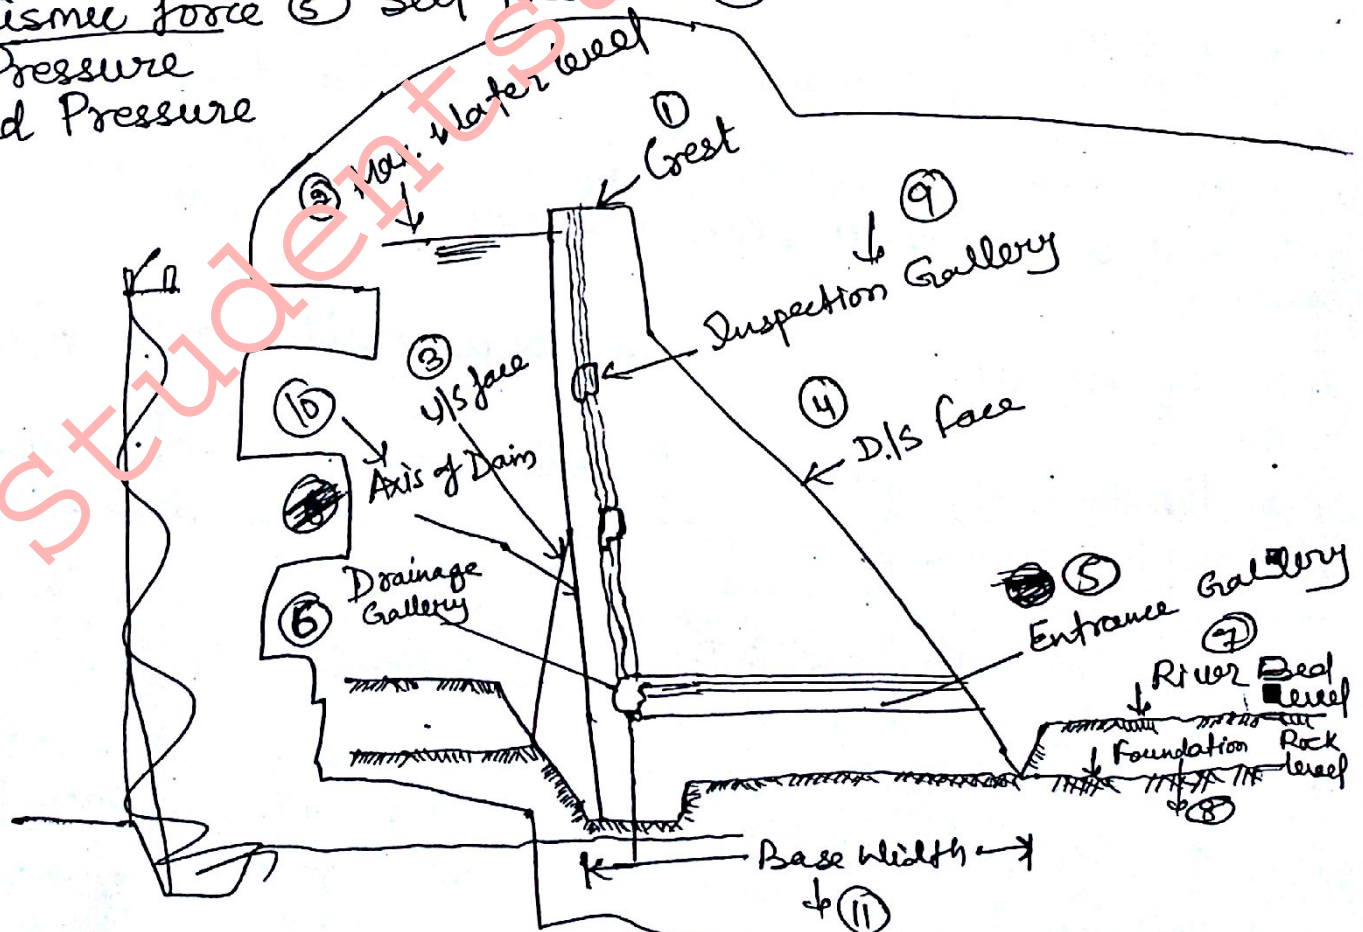 ismic force ⑤ Self
Pressure
d Pressure
② Max. Water level
① Crest
⑨
Inspection Gallery
③ U/S face
④ D/S face
⑩ Axis of Dam
⑥ Drainage
Gallery
⑤ Entrance Gallery
⑦
River Bed
level
Foundation Rock
level
⑧
Base Width
⑪
Students